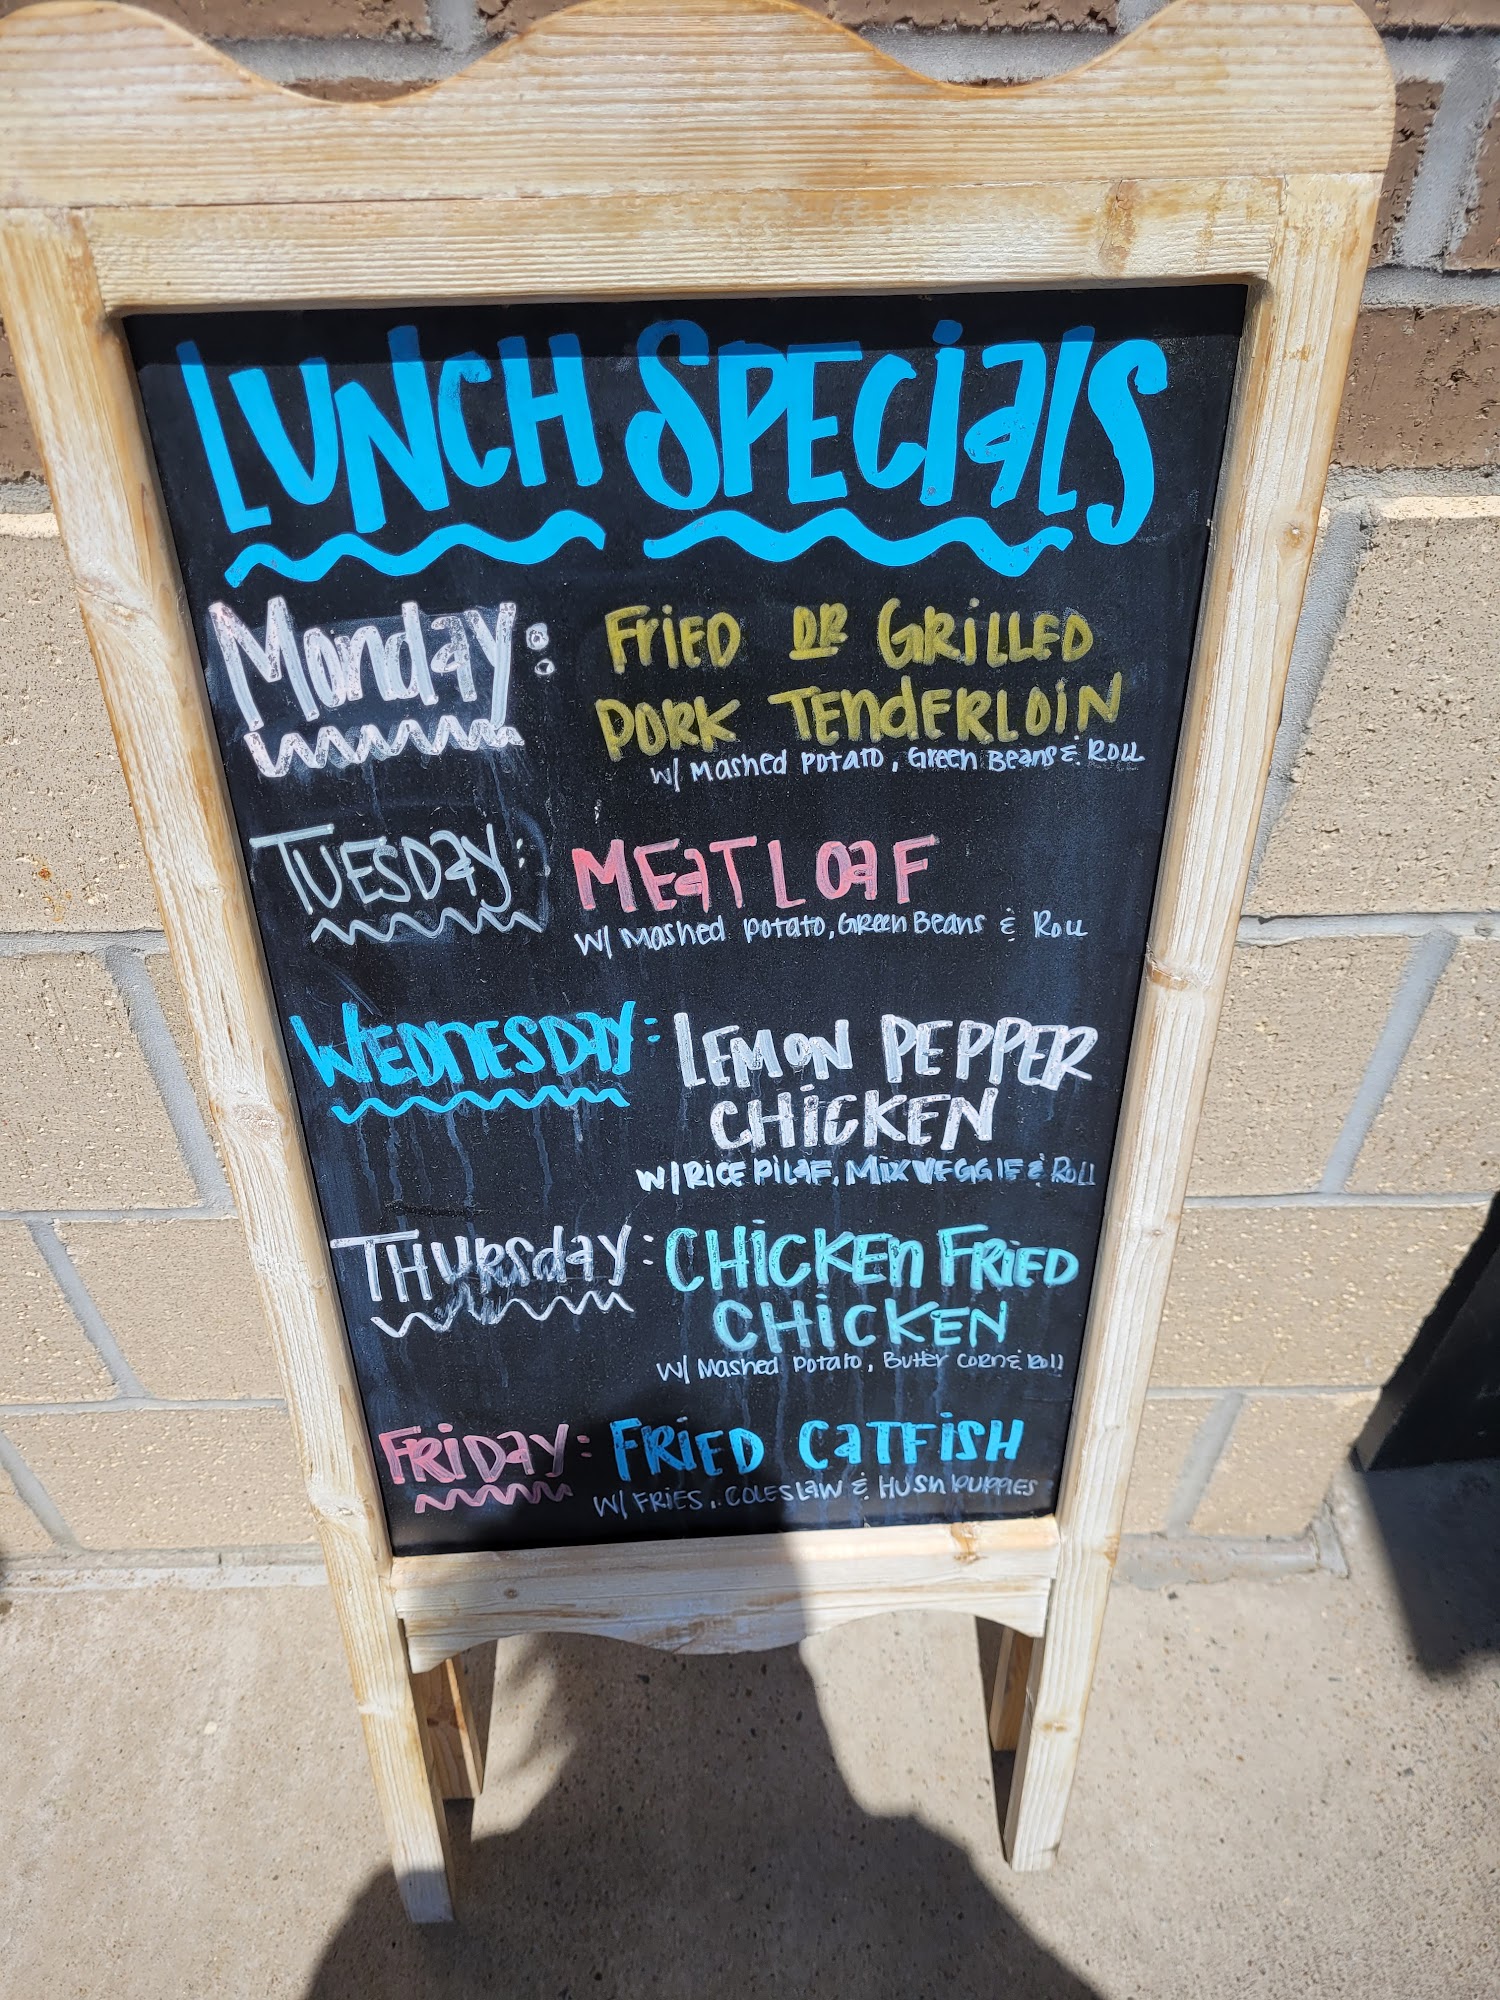 LUNCH SPECIALS
Monday: FRIED OR GRILLED
PORK TENDERLOIN
W/ Mashed Potato, Green Beans & Roll
TUESDAY: MEATLOAF
W/ Mashed Potato, Green Beans & Roll
WEDNESDAY: LEMON PEPPER
CHICKEN
W/ RICE PILAF, MIX VEGGIE & Roll
THURSDAY: CHICKEN FRIED
CHICKEN
W/ Mashed Potato, Butter Corn & Roll
FRIDAY: FRIED CATFISH
W/ FRIES, COLESLAW & HUSH PUPPIES